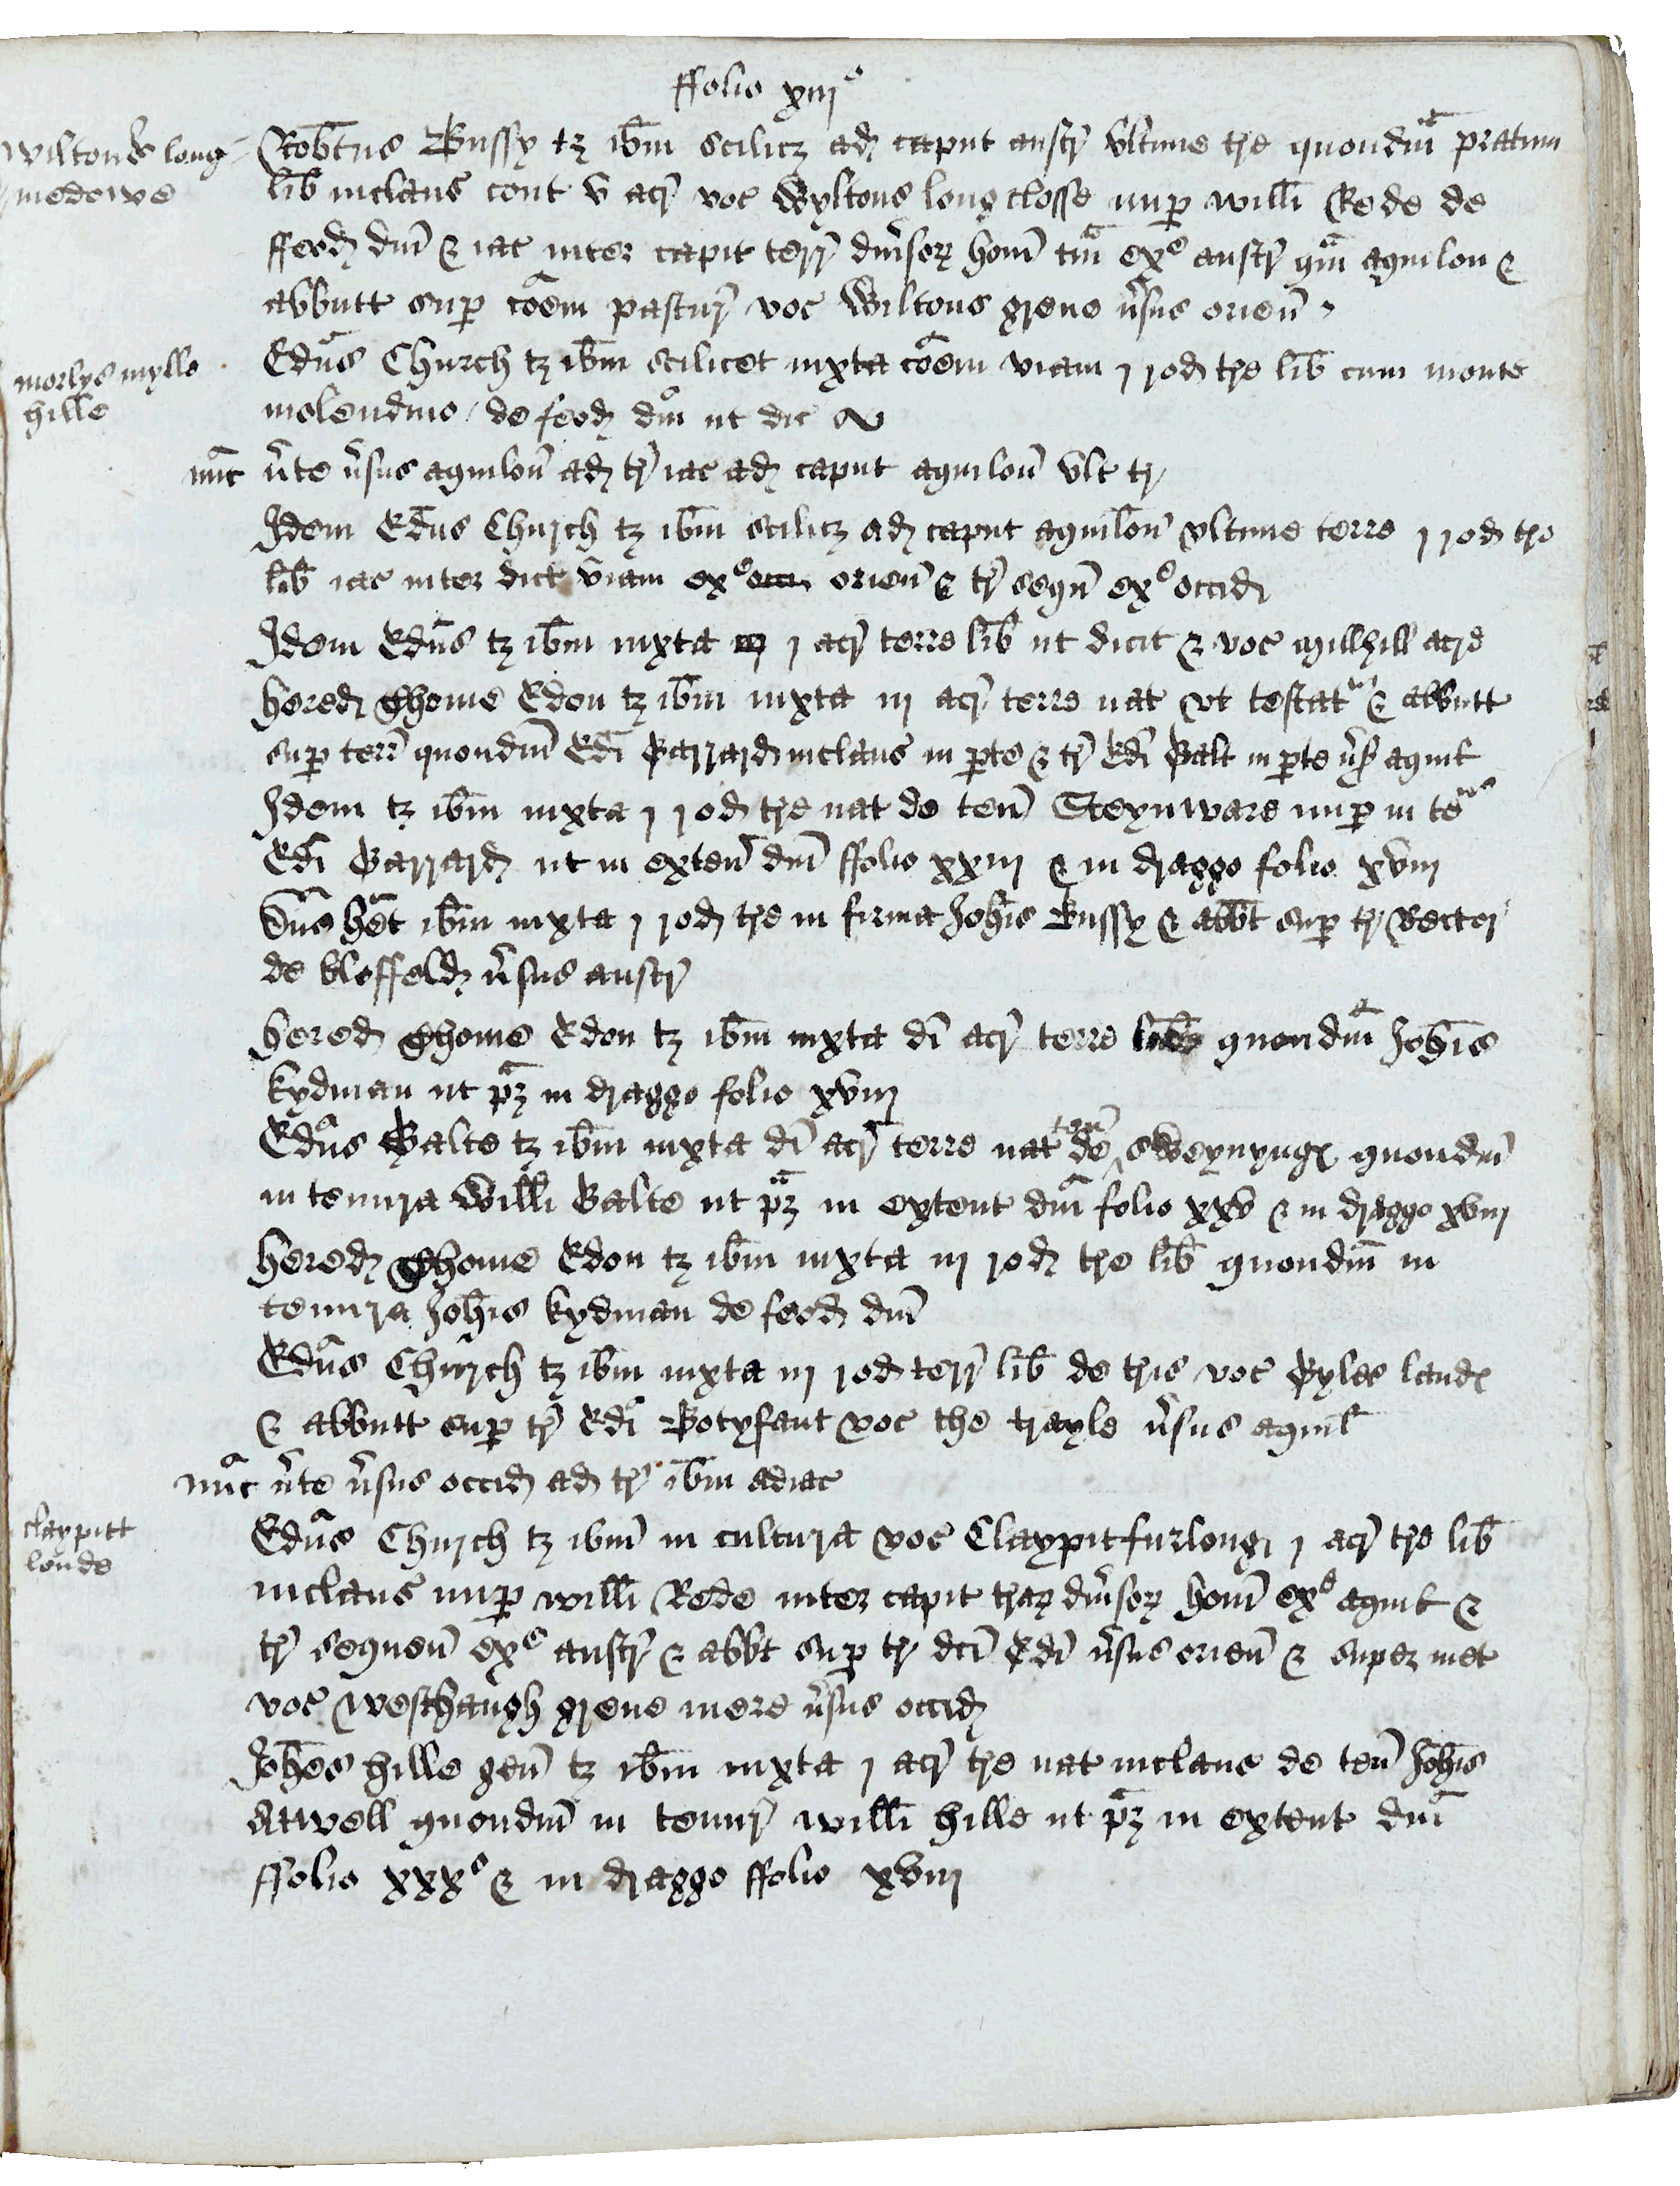 ffolio xiijº
Wiltons long medowe
Rob̄tus Bussy tz ib̄m scilicz ad caput austr̃ vltime tre quondm̃ pratum
lib̄ inclaus cont v acr̃ voc Wyltons long closse nup willi Rede de
ffeod dñi & iac inter capit terr̃ diũsor hom̃ tm̃ exº austr̃ qm̃ aquilon &
abbutt sup cõem pastur̃ voc Wiltons grene ũsus orien̄
morlys mylle hille
Edũs Church tz ib̄m scilicet iuxta cõem viam j rod tre lib̄ cum monte
molendino / de feod dñi ut dic
nũc ũte ũsus aquilon̄ ad tr̃ iac ad caput aquilon̄ vlt tr̃
Idem Edũs Church tz ib̄m scilicz ad caput aquilon̄ vltime terre j rod tre
lib̄ iac inter dict viam exº orien̄ & tr̃ seqũ exº occid
Idem Edũs tz ib̄m iuxta j acr̃ terre lib̄ ut dicit & voc millhill acre
hered Thome Edon tz ib̄m iuxta iij acr̃ terre nat vt testat͏ur & abbutt
sup terr̃ quondm̃ Edĩ Parrard inclaus in pte & tr̃ Edĩ Balt in pte ũs aquil
Idem tz ib̄m iuxta j rod tre nat de ten̄ Steynware nup in te
Edĩ Barrard ut in exten̄ dñi ffolio xxiij & in draggo folio xviij
Dñs hẽt ib̄m iuxta j rod tre in firma Joh̄is Bussy & abb̄t sup tr̃ Rector
de Bloffeld ũsus austr̃
hered Thome Edon tz ib̄m iuxta dĩ acr̃ terre quondm̃ Joh̄is
kydman ut pz in draggo folio xviij
Edũs Balte tz ib̄m iuxta dĩ acr̃ terre nat de ten̄ sweynyng quondm̃
in tenura Willi Balte ut pz in extent dñi folio xxv & in draggo xviij
hered Thome Edon tz ib̄m iuxta iij rod tre lib̄ quondm̃ in
tenura Joh̄is kydman de feod dñi
Edũs Church tz ib̄m iuxta iij rod terr̃ lib̄ de tris voc Pyles land
& abbutt sup tr̃ Edĩ Botyfant voc the trayle ũsus aquil
nũc ũte ũsus occid ad tr̃ ib̄m adiac
claypitt londe
Edũs Church tz ibm̃ in cultura voc Claypitfurlong j acr̃ tre lib̄
inclaus nup willi Rede inter capit trar diũsor hom̃ exº aquil &
tr̃ sequen̄ exº austr̃ & abbt sup tr̃ dcĩ Edĩ ũsus orien̄ & super met
voc westhaugh grene mere ũsus occid
Joh̄es hille gen̄ tz ib̄m iuxta j acr̃ tre nat inclaus de ten̄ Joh̄is
Atwell quondm̃ in tenur̃ willi hille ut pz in extent dñi
ffolio xxxº & in draggo ffolio xviij